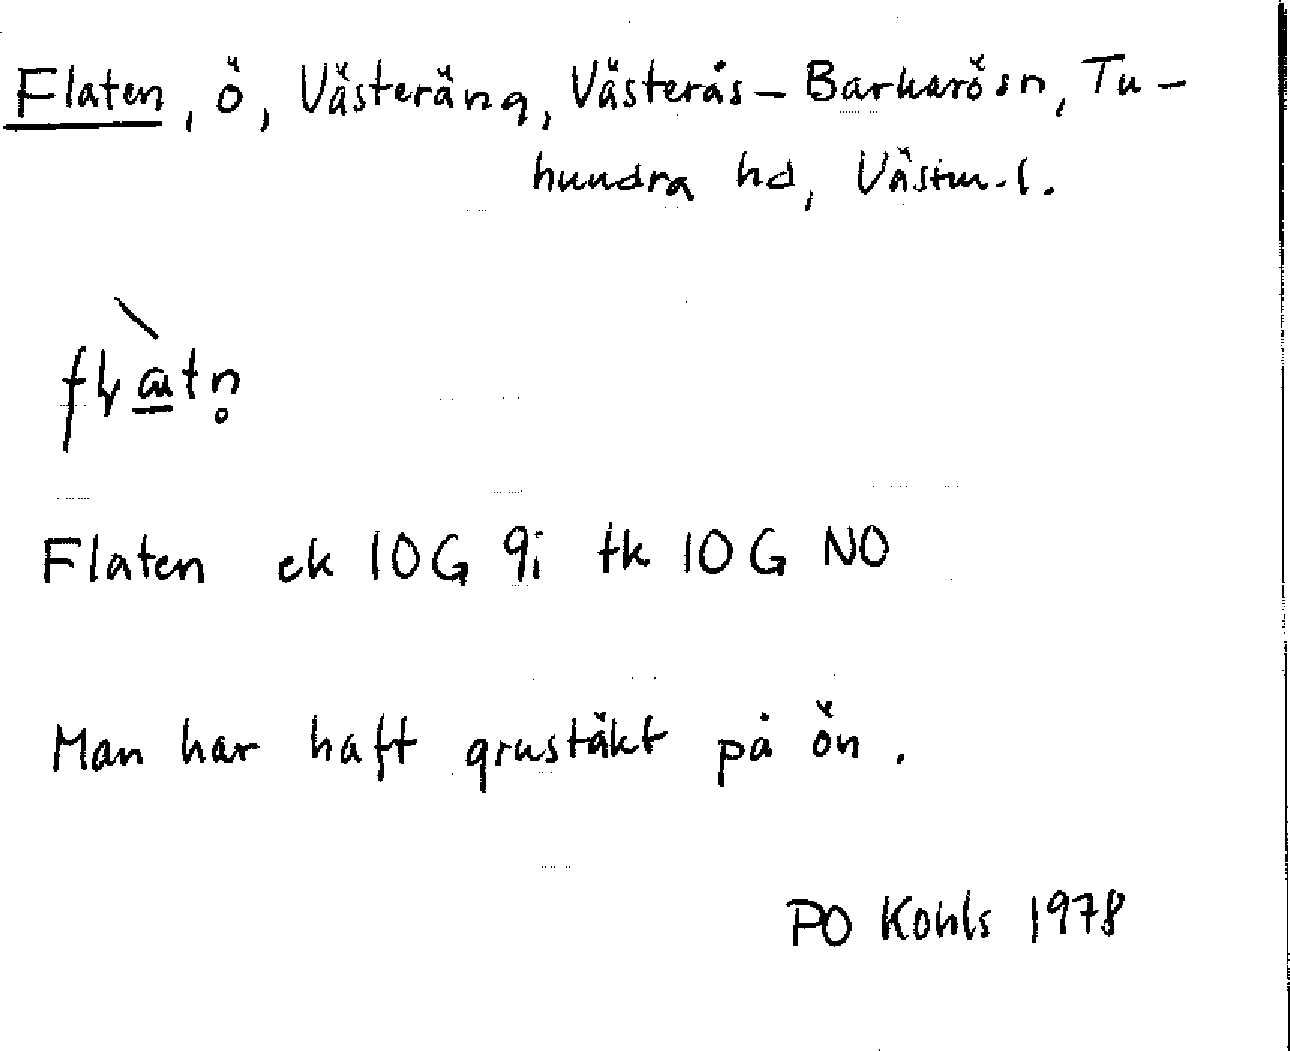 Flaten, ö, Västeräng, Västerås-Barkarö sn, Tu-
hundra hd, Västm.l.
Flaten ek 10G 9i tk 10G NO
Man har haft grustäkt på ön.
PO Kohls 1978